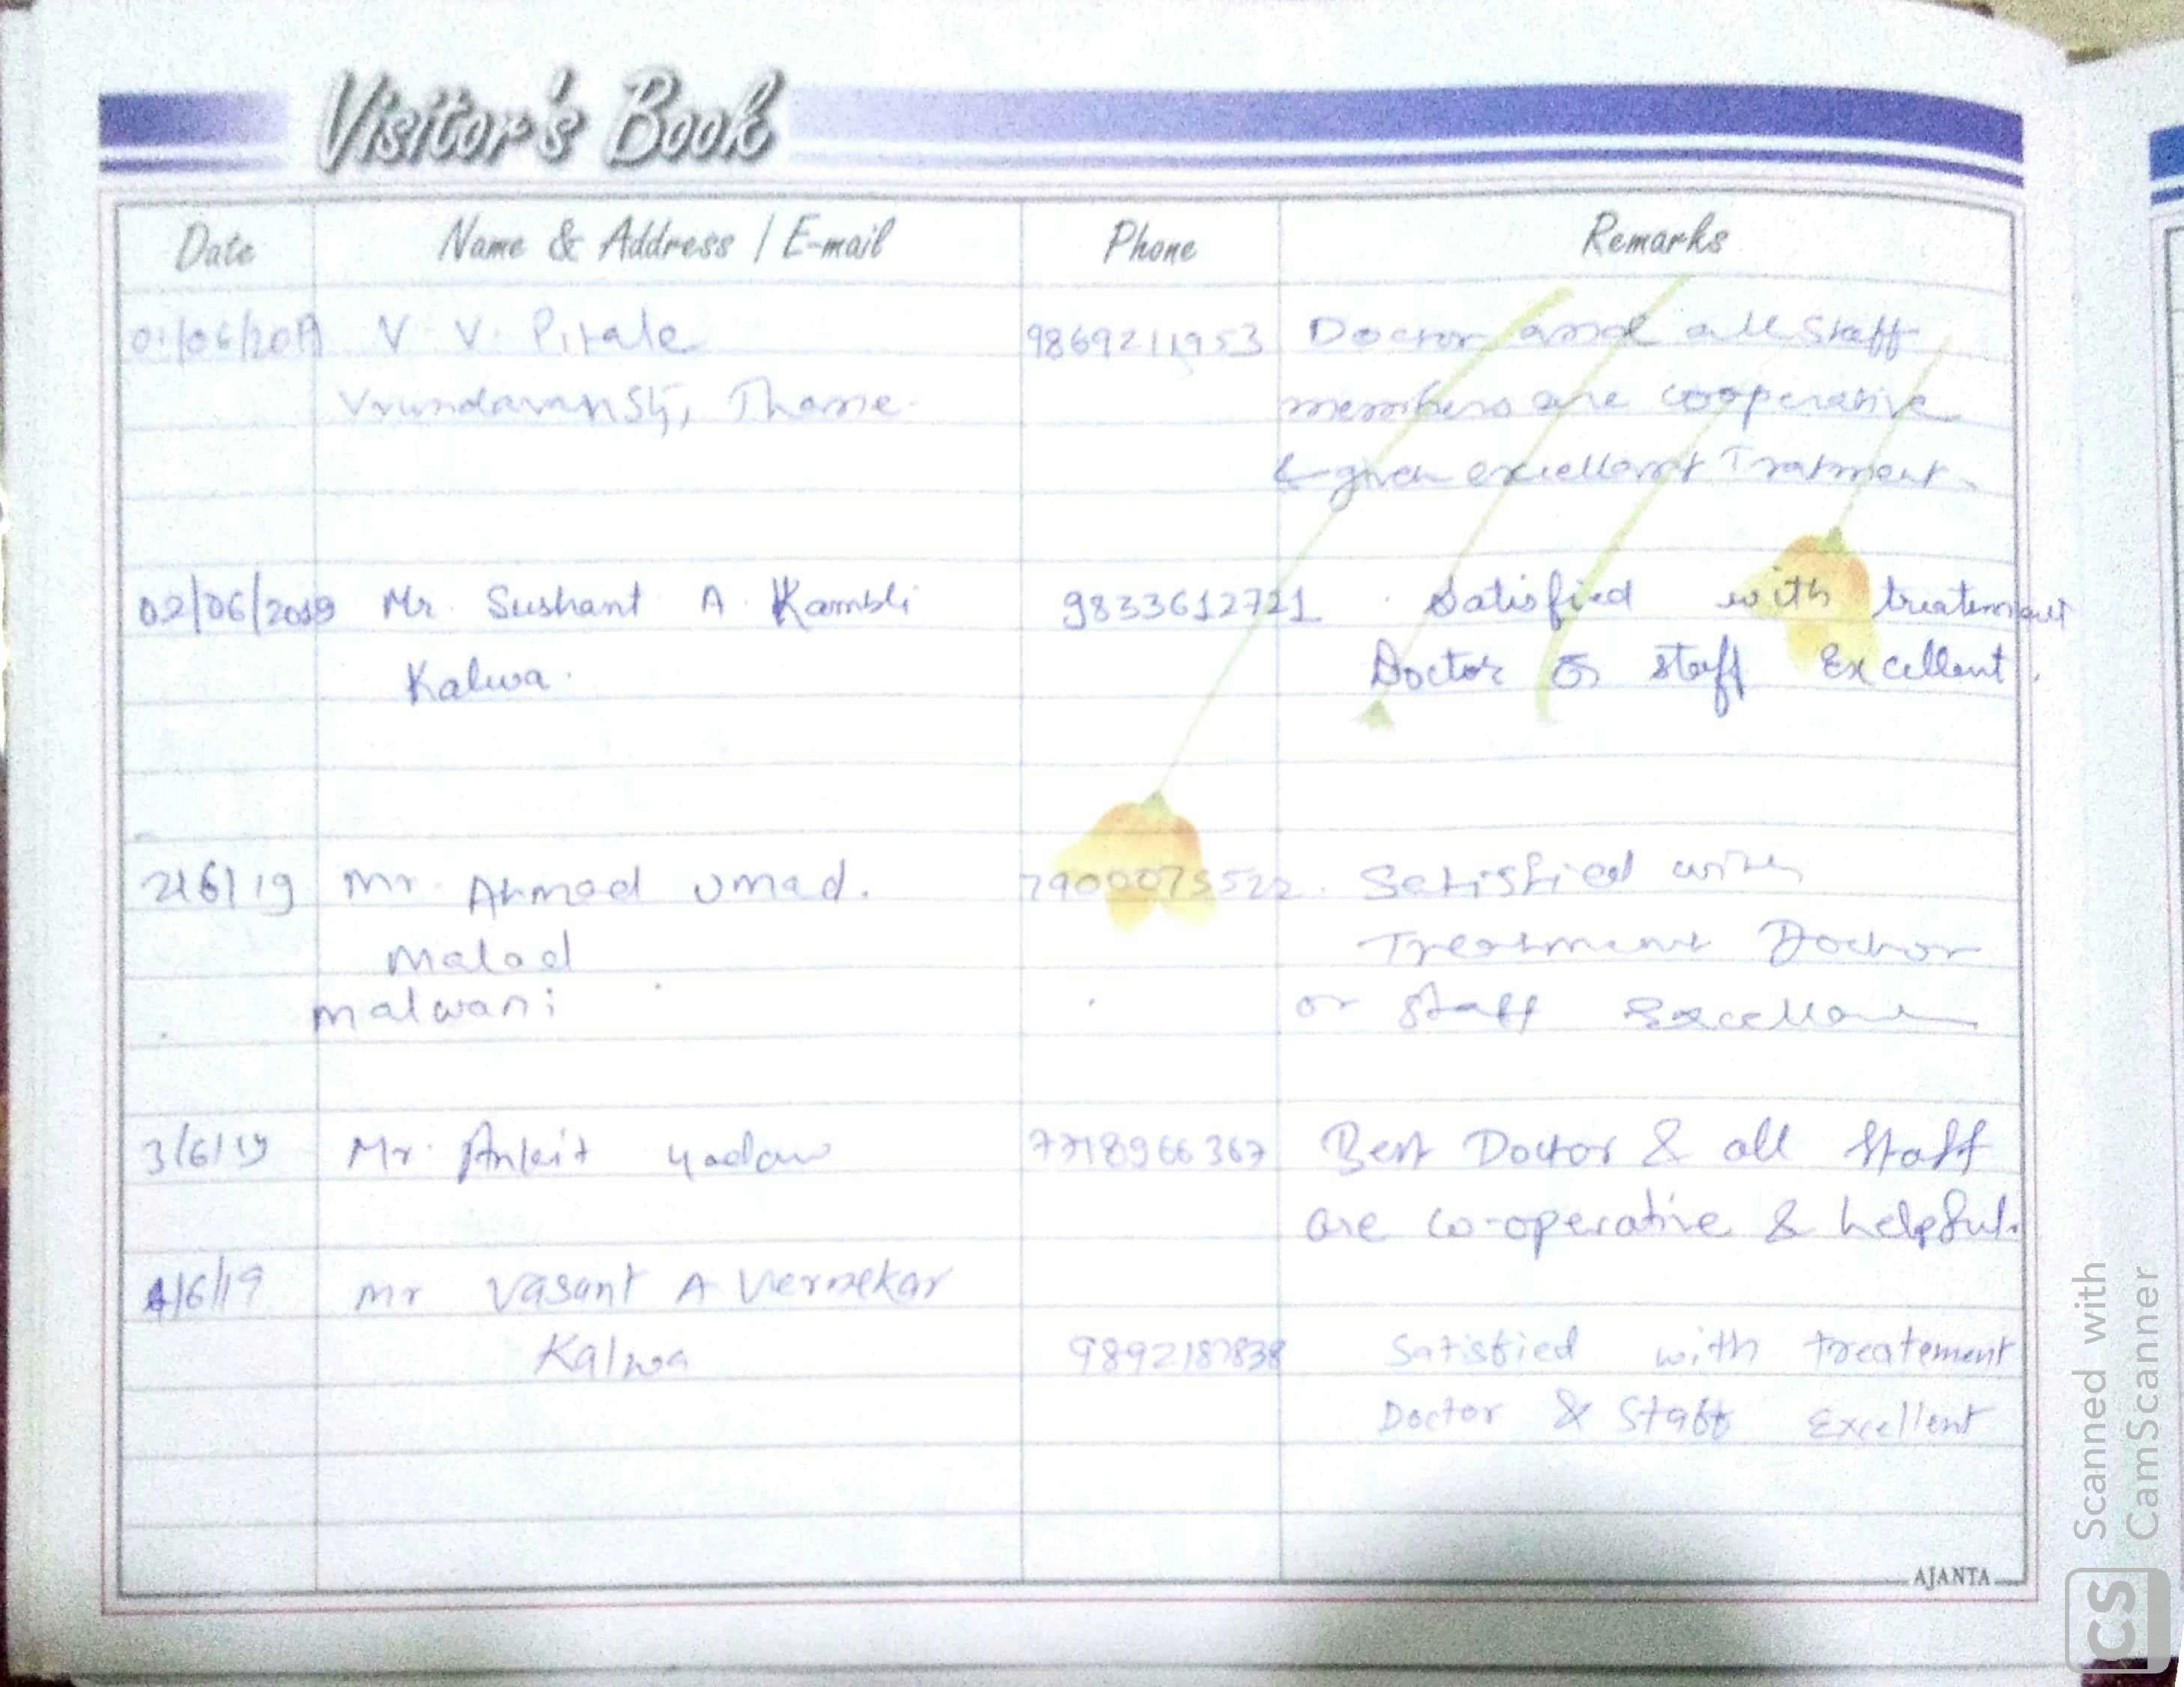 Visitor's Book
Date Name & Address / E-mail Phone Remarks
01/06/2019 V. V. Pitale 9869211953 Doctor and all staff
Vrundavan Sty, Thane. members are cooperative
& given excellant Tratment.
02/06/2019 Mr. Sushant A. Kambli 9833612721 Satisfied with treatement
Kalwa. Doctor & staff Excellent.
2/6/19 Mr. Ahmad Umad. 7900075522. Satisfied with
Malad Treatment Doctor
malwani or staff Excellent
3/6/19 Mr. Ankit yadav 7718966367 Best Doctor & all staff
are co-operative & helpful.
4/6/19 Mr Vasant A Vernekar
Kalwa 9892187838 Satisfied with treatement
Doctor & Staff Excellent
AJANTA
CS Scanned with
CamScanner